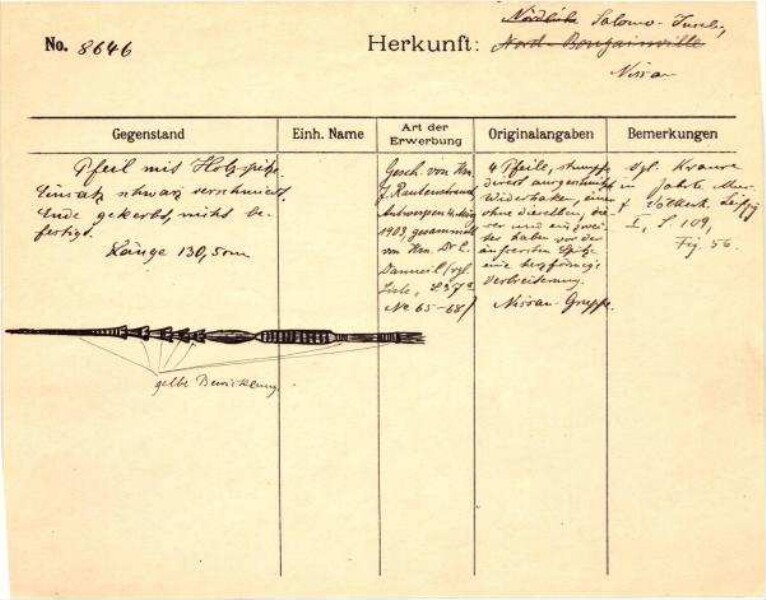 No. 8646
Herkunft: Nördliche Salomo-Inseln,
Nord-Bougainville
Nissan
Gegenstand
Einh. Name
Art der Erwerbung
Originalangaben
Bemerkungen
Pfeil mit Holzspitze.
Einsatz schwarz verschmiert.
Ende gekerbt, nicht be-
festigt.
Länge 130,5 cm
gelbe Bewicklung
Gesch. von Hrn.
J. Rautenstrauch,
Antwerpen 4. Mai
1903, gesammelt
von Hrn. Dr. E.
Danneil (vgl.
Liste, S 37a
No 65-68)
4 Pfeile, stumpfe
direct ausgeschnitzte
Widerhaken, einer
ohne dieselben, die-
ser und ein zwei-
ter haben vor der
äußersten Spitze
eine herzförmige
Verbreiterung.
Nissan-Gruppe.
Vgl. Krause
in Jahrb. Mus.
f Völkerk. Leipzig
I, S. 109,
Fig. 56.